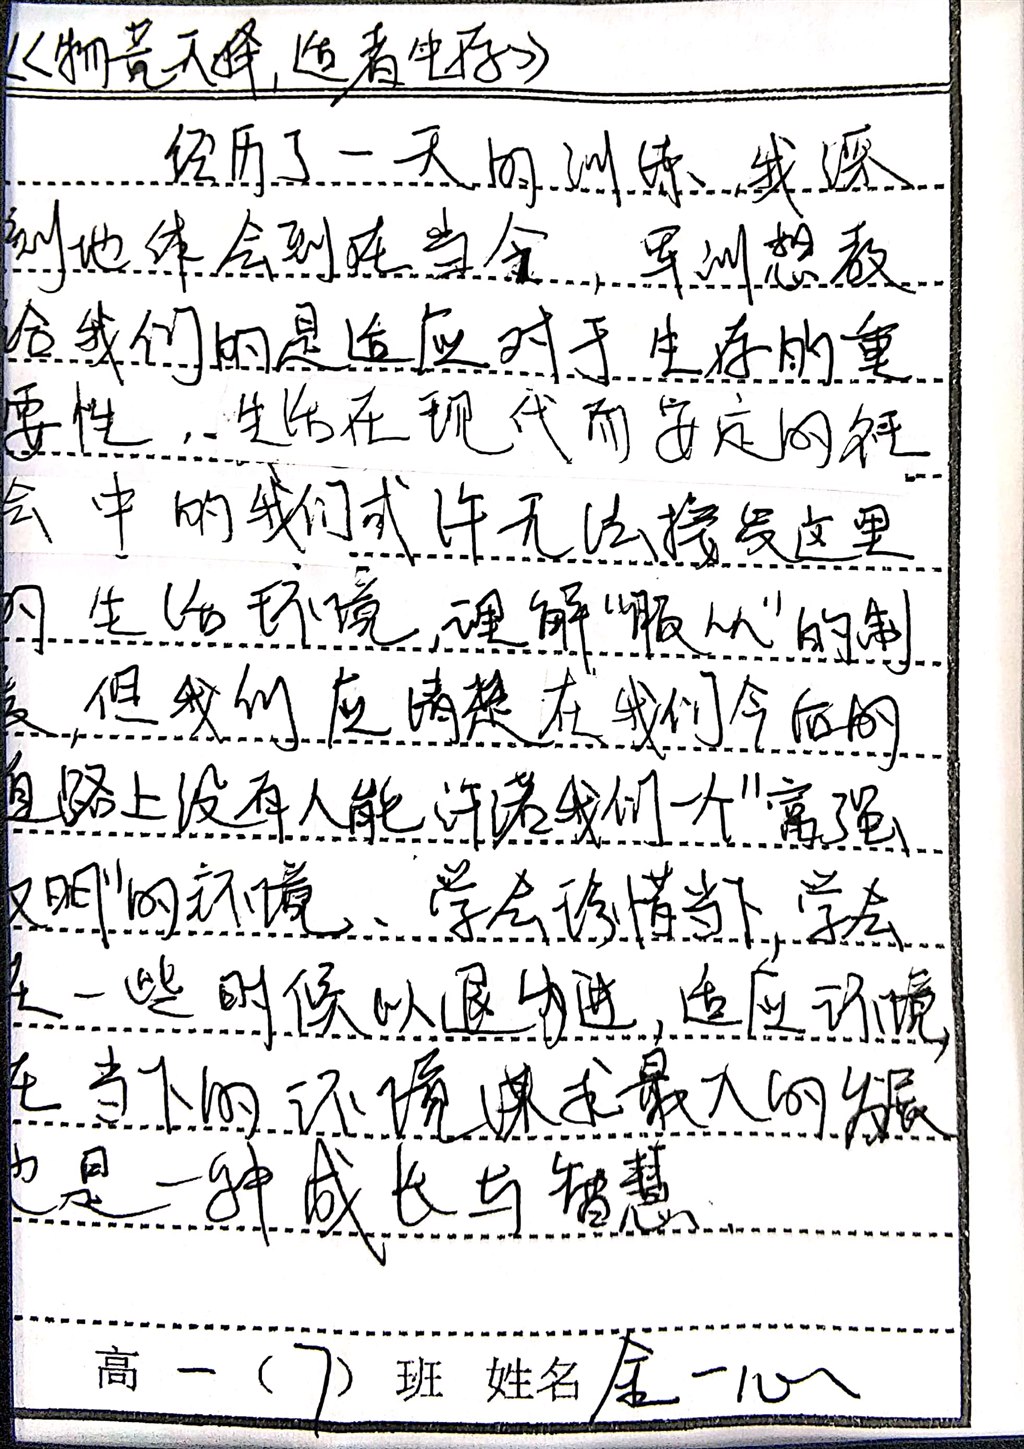 《物竞天择，适者生存》
经历了一天的训练，我深
刻地体会到在当今，军训想教
给我们的是适应对于生存的重
要性．生活在现代而安定的社
会中的我们或许无法接受这里
的生活环境，理解“服从”的制
度，但我们应清楚在我们今后的
道路上没有人能许诺我们一个“富强
文明”的环境、学会珍惜当下，学会
在一些时候以退为进，适应环境，
在当下的环境谋求最大的发展
也是一种成长与智慧．
高一（7）班 姓名 金一